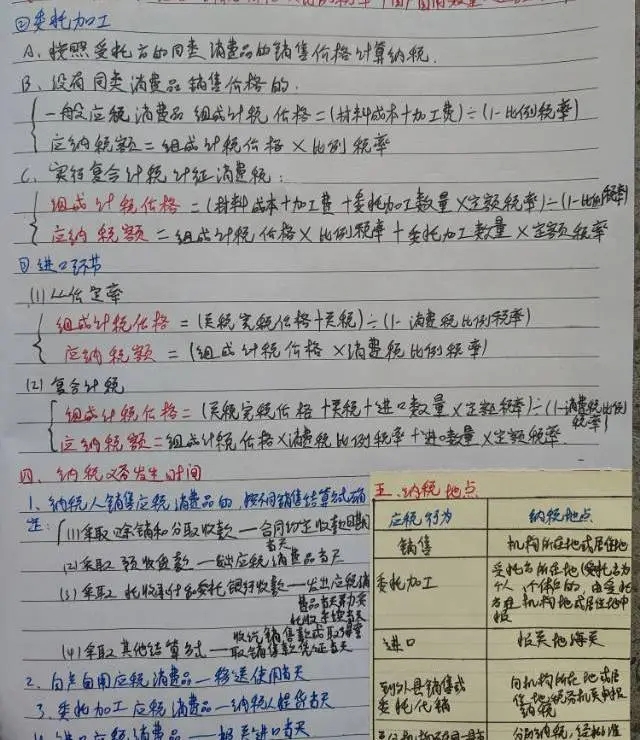 ②委托加工
A、按照受托方的同类消费品的销售价格计算纳税.
B、没有同类消费品销售价格的.
一般应税消费品 组成计税价格=(材料成本+加工费)÷(1-比例税率)
应纳税额=组成计税价格×比例税率
C、实行复合计税计征消费税:
组成计税价格=(材料成本+加工费+委托加工数量×定额税率)÷(1-比例税率)
应纳税额=组成计税价格×比例税率+委托加工数量×定额税率
③进口环节
(1)从价定率
组成计税价格=(关税完税价格+关税)÷(1-消费税比例税率)
应纳税额=(组成计税价格×消费税比例税率)
(2)复合计税
组成计税价格=(关税完税价格+关税+进口数量×定额税率)÷(1-消费税比例税率)
应纳税额=组成计税价格×消费税比例税率+进口数量×定额税率.
四、纳税义务发生时间
1、纳税人销售应税消费品的,按不同销售结算方式确
定:
(1)采取赊销和分期收款—合同约定收款日期
当天
(2)采取预收货款—发出应税消费品当天
(3)采取托收承付和委托银行收款—发出应税消
费品当天并办妥
托收手续当天
(4)采取其他结算方式—收讫销售款或取得索
取销售款凭证当天
2、自产自用应税消费品—移送使用当天
3、委托加工应税消费品—纳税人提货当天
4、进口应税消费品—报关进口当天
五、纳税地点
应税行为 纳税地点
销售 机构所在地或居住地
委托加工 受托方所在地(受托方为
个人、个体的,由委托
方在机构地或居住地申
报
进口 报关地海关
到外县销售或 向机构所在地或居
委托代销 住地税务机关申报
纳税
分别纳税,经批准